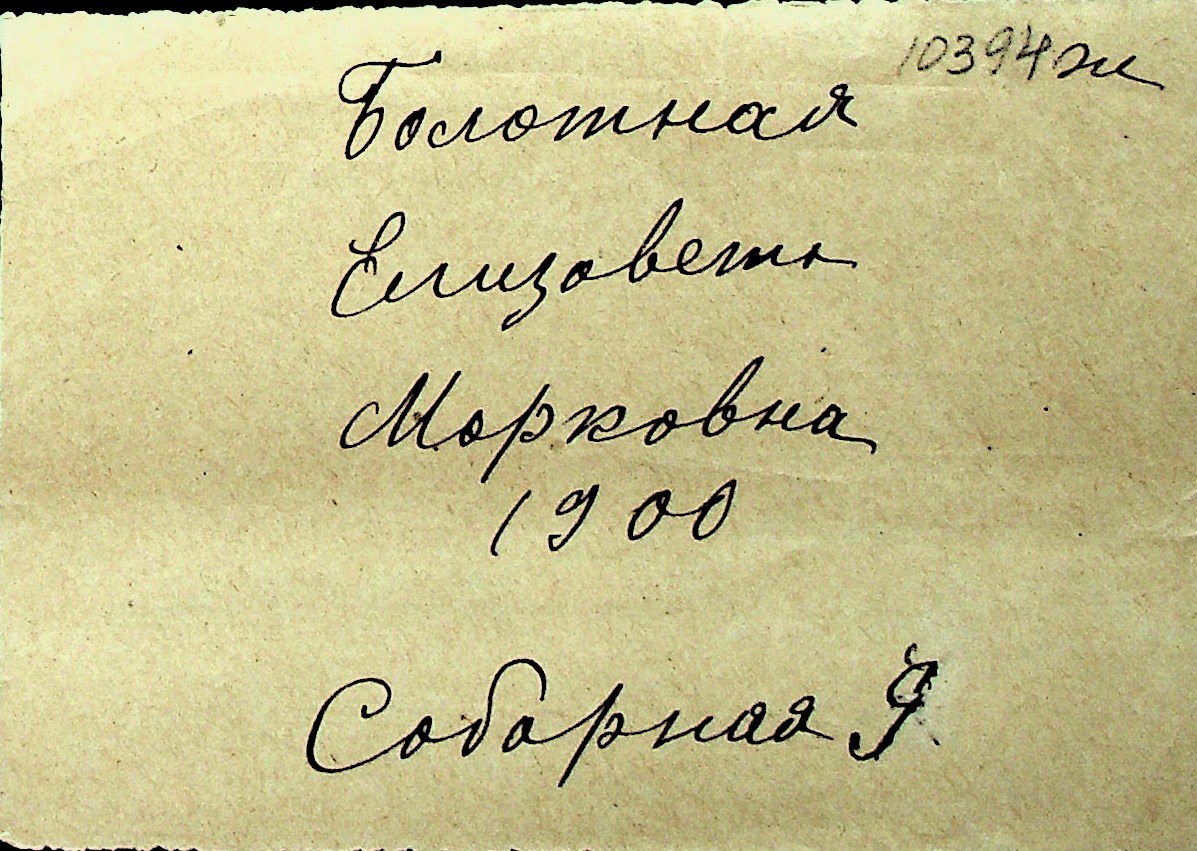 10394ж
Болотная
Елизовета
Морковна
1900
Соборная 9